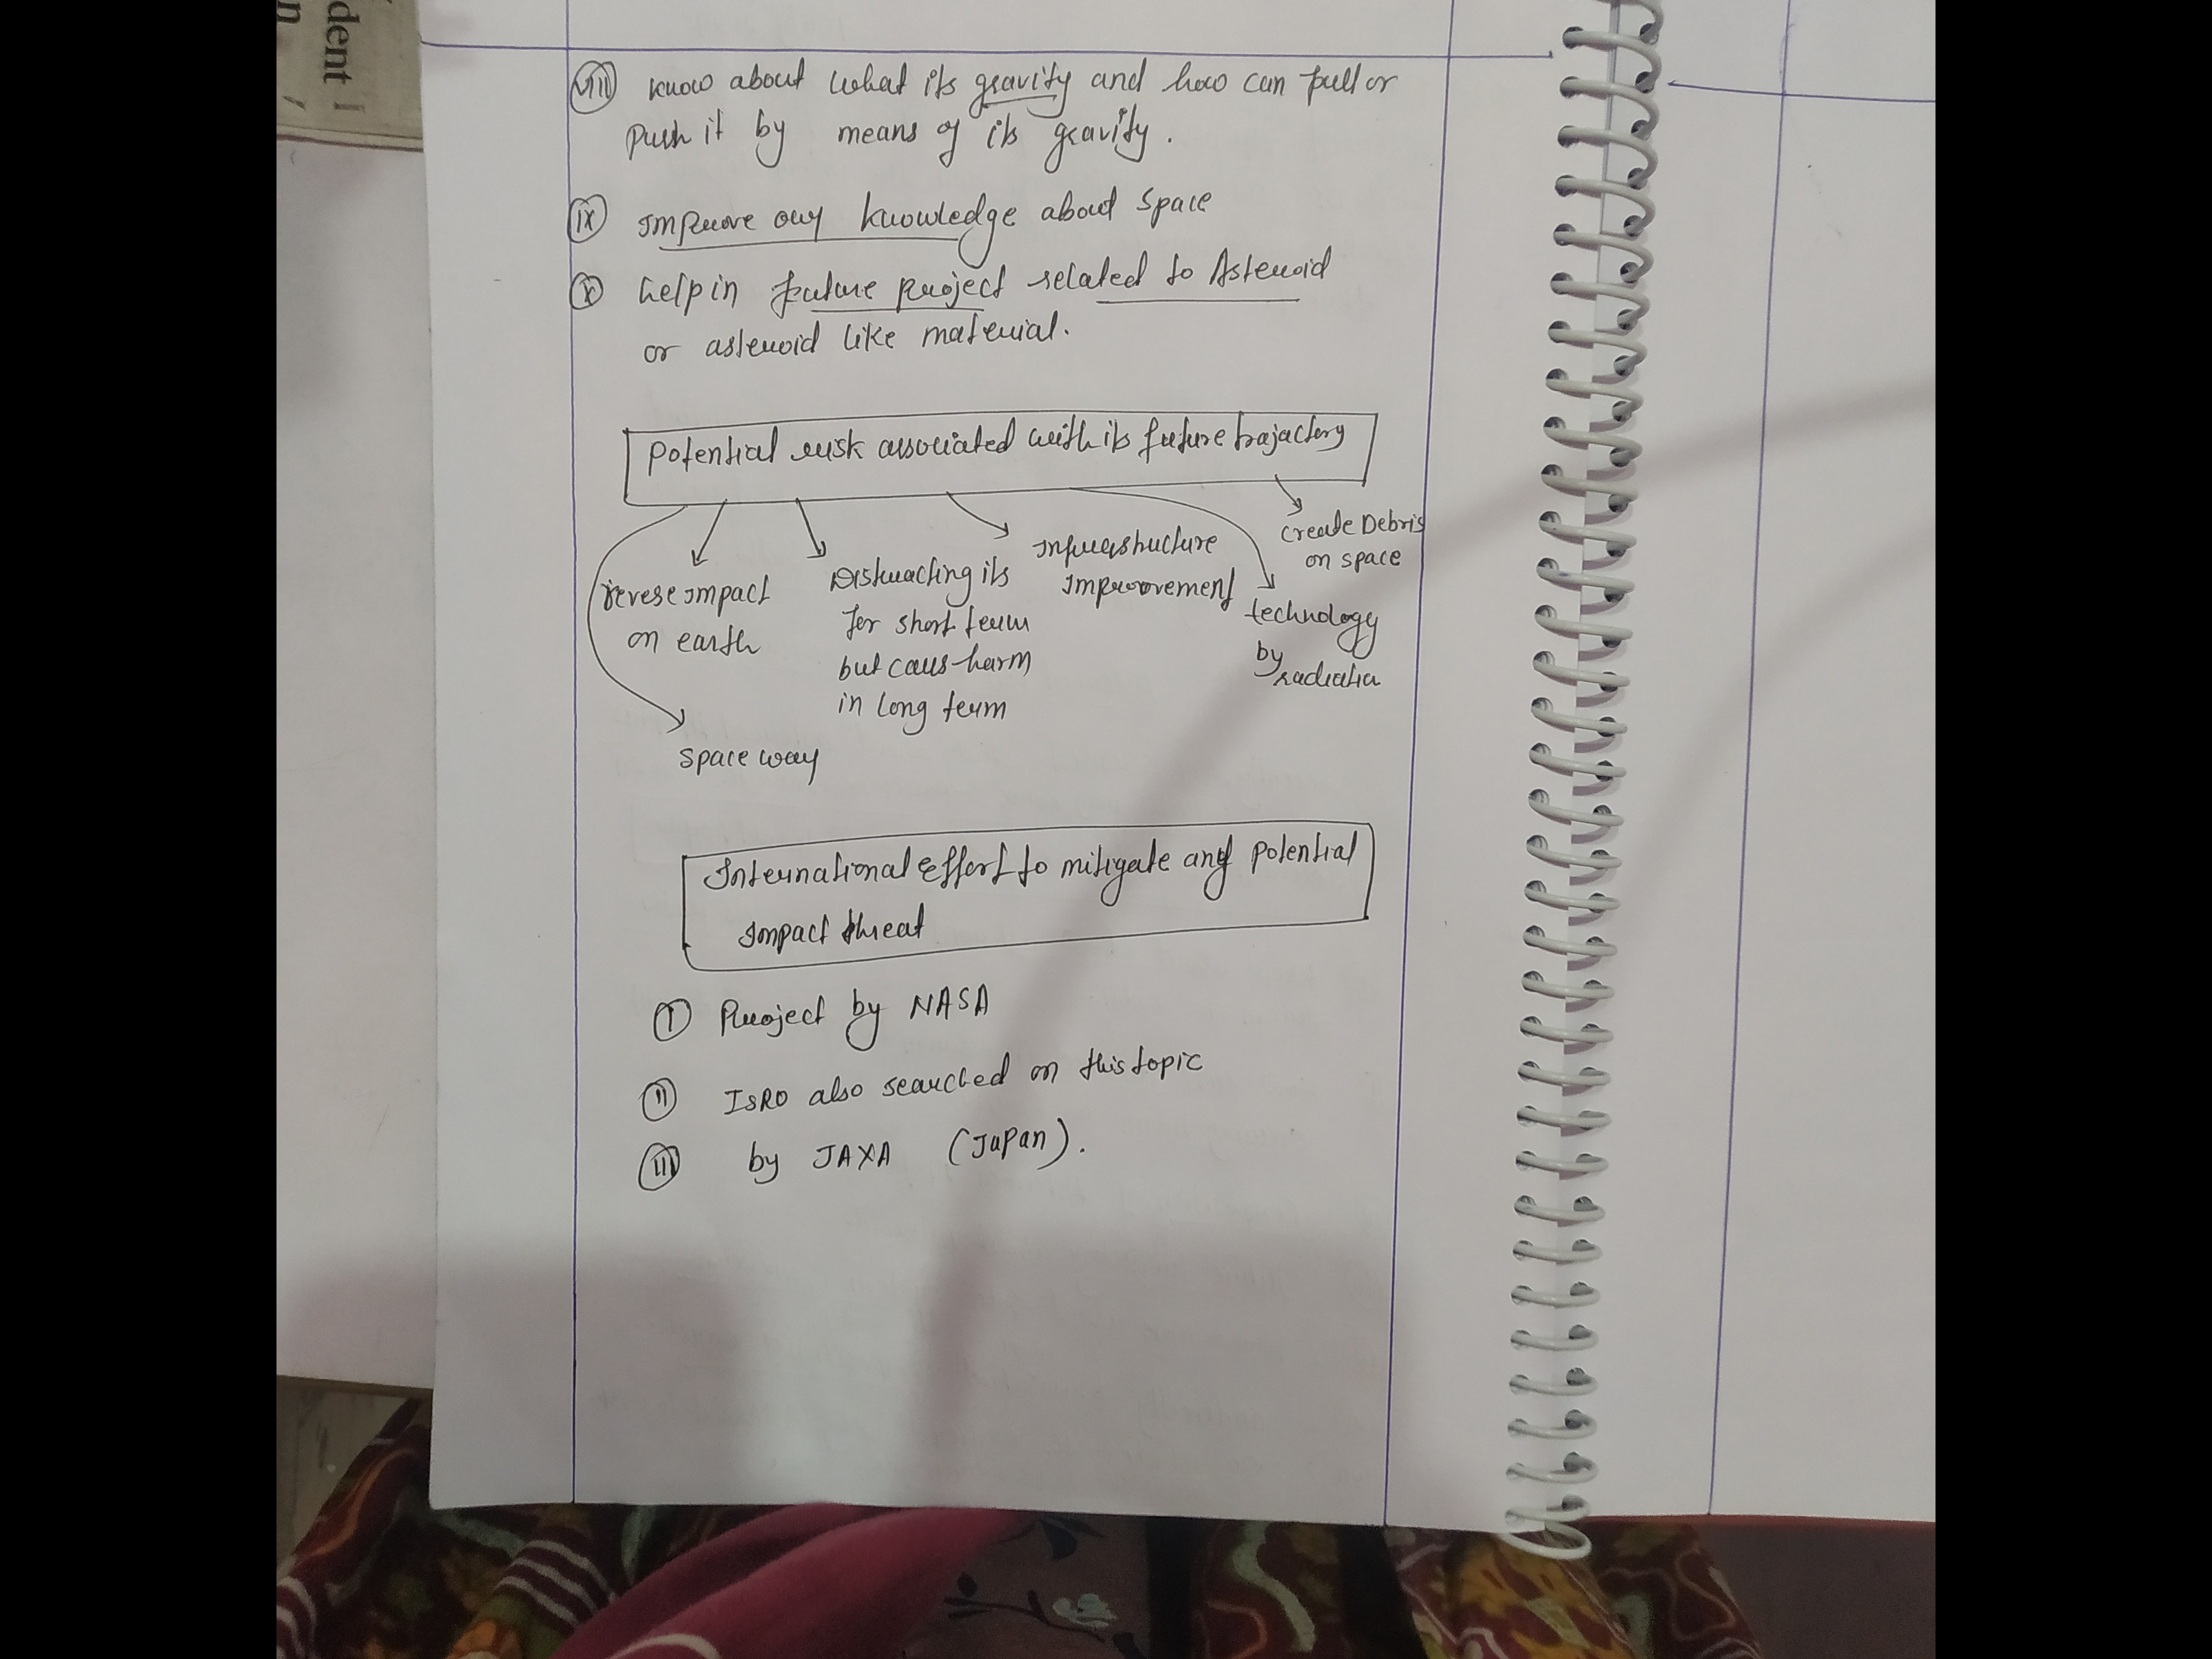 dent
n
(viii) know about what its gravity and how can pull or
push it by means of its gravity.
(ix) Improve our knowledge about space
(x) help in future project related to Asteroid
or asteroid like material.
Potential risk associated with its future trajactory
create Debris
on space
Infrastructure
Improovement
technology
by
radiation
reverse impact
on earth
Distracting its
for short term
but caus harm
in long term
space way
International Effort to mitigate any potential
Impact threat
(I) Project by NASA
(II) ISRO also searched on this topic
(III) by JAXA (Japan).